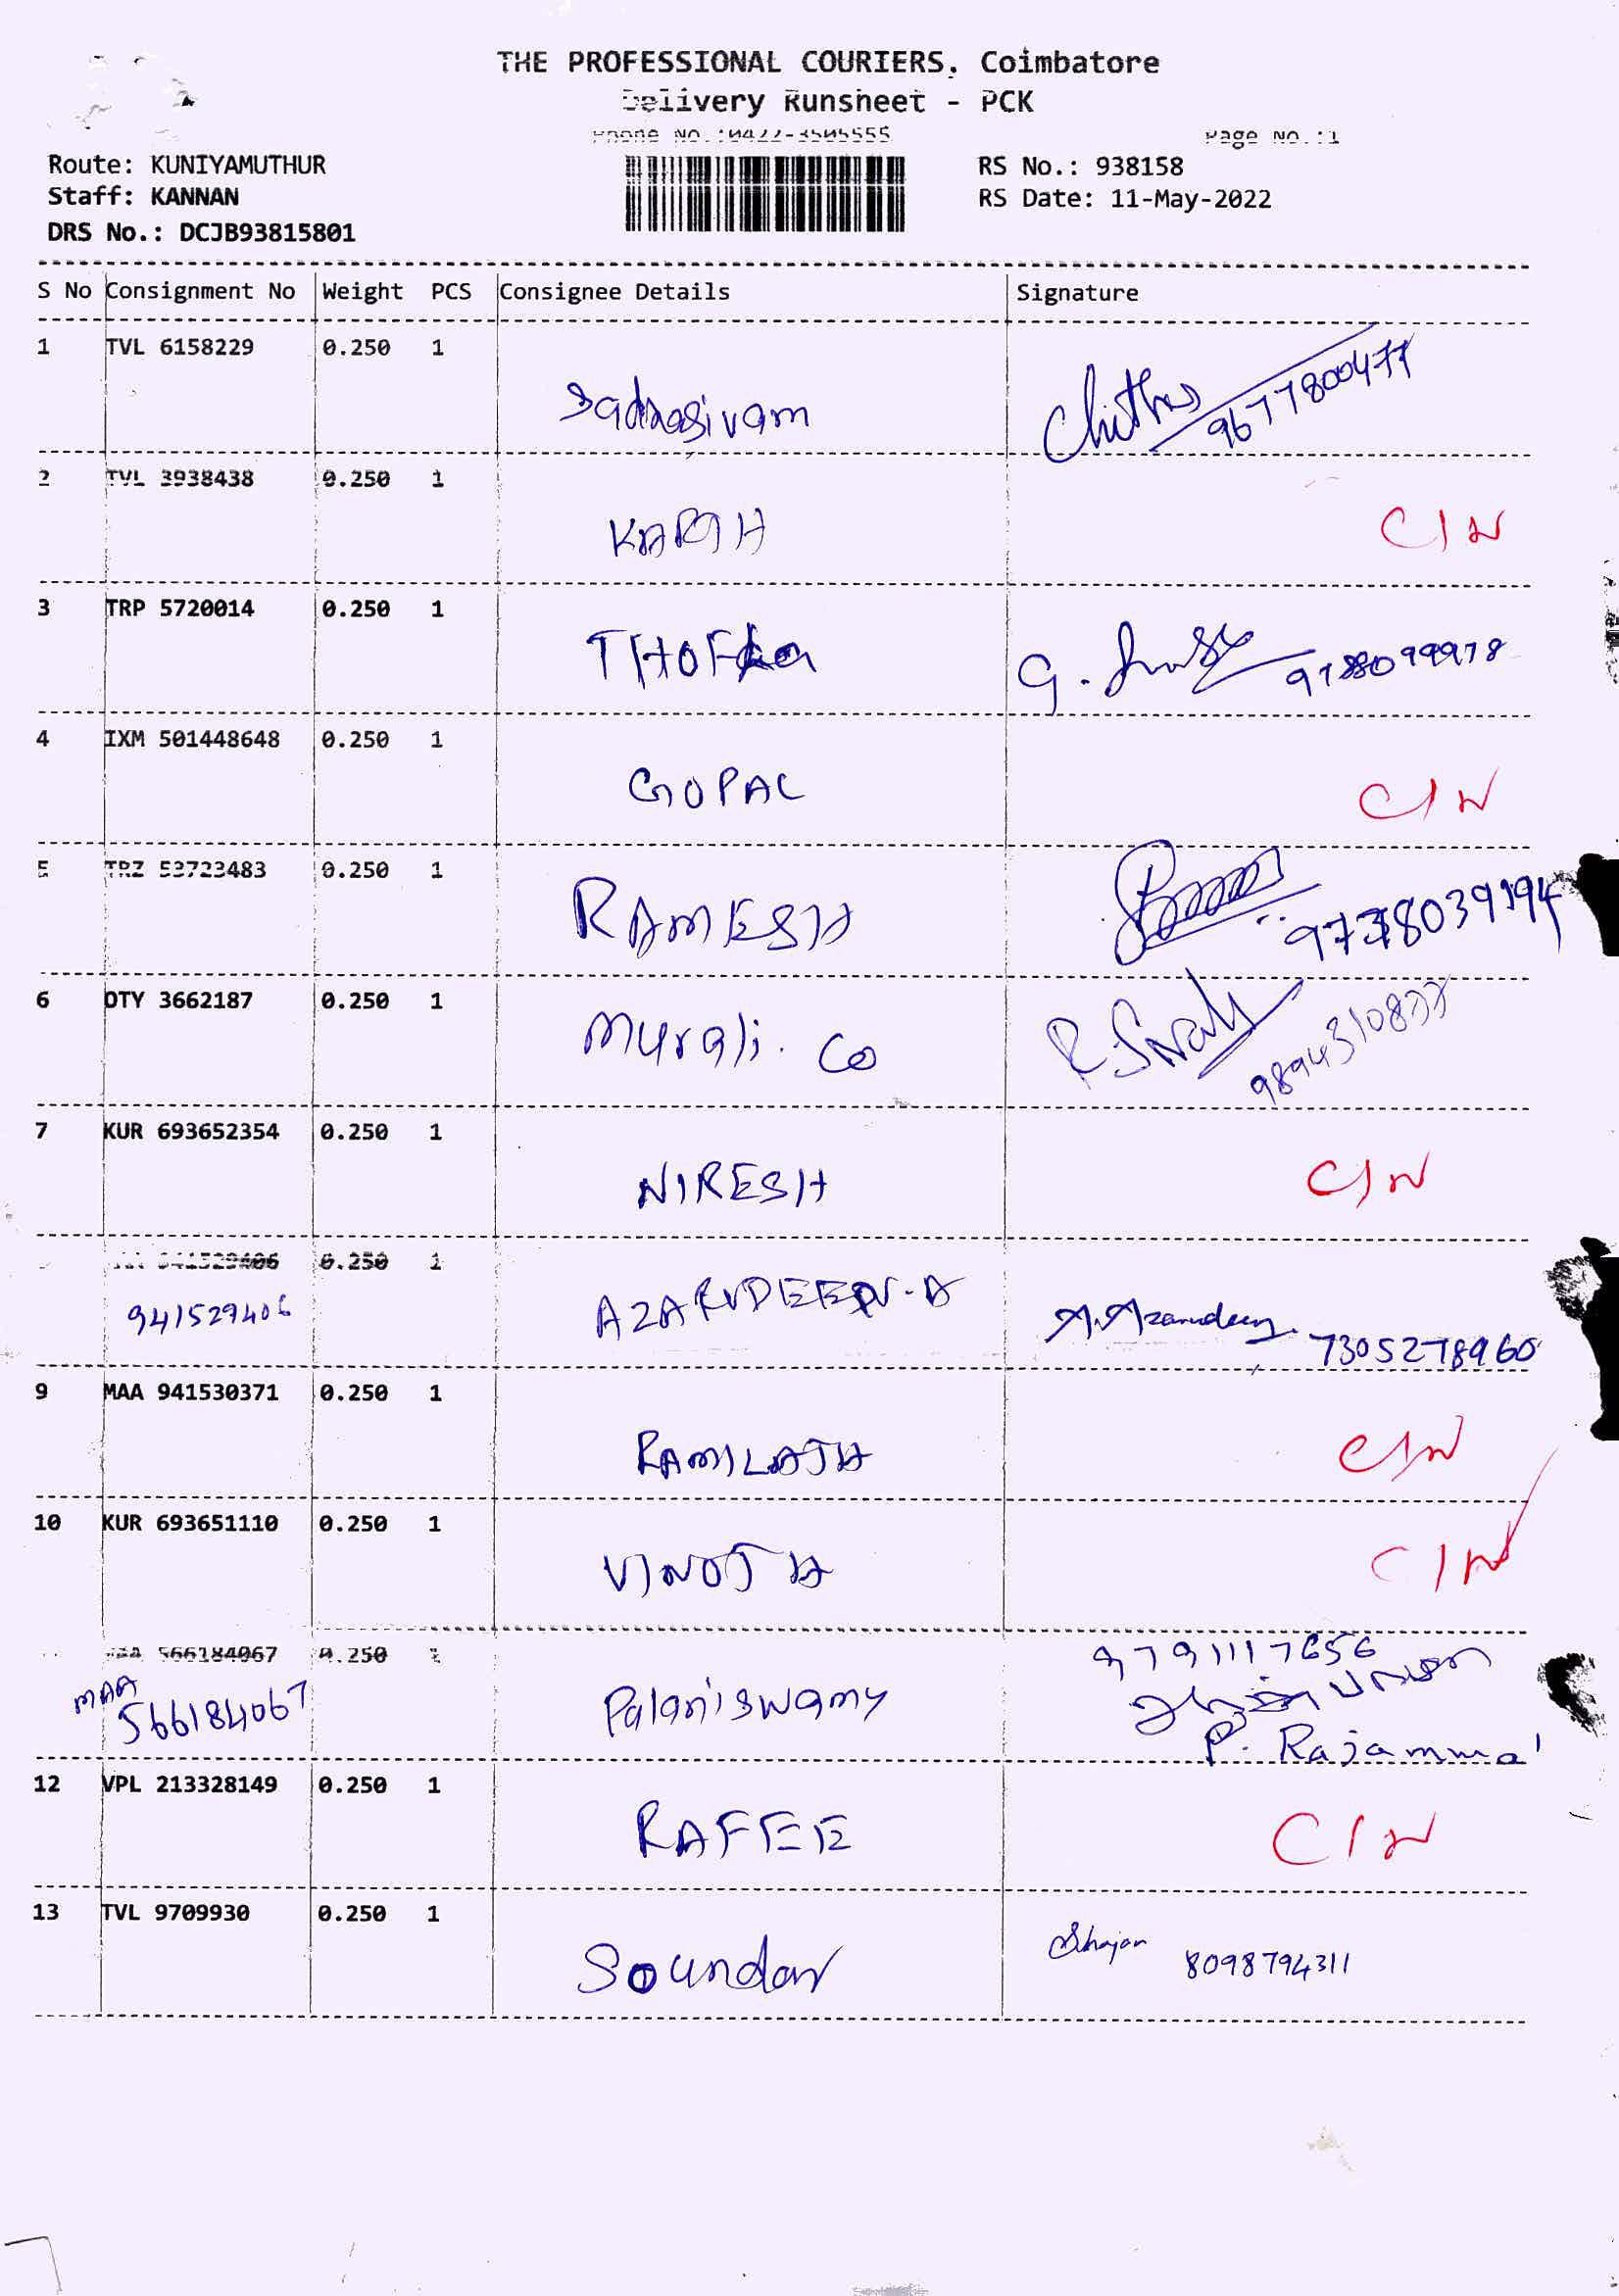 THE PROFESSIONAL COURIERS. Coimbatore
Delivery Runsheet - PCK
Phone No.:0422-3505555 Page No.:1
Route: KUNIYAMUTHUR RS No.: 938158
Staff: KANNAN RS Date: 11-May-2022
DRS No.: DCJB93815801
S No Consignment No Weight PCS Consignee Details Signature
1 TVL 6158229 0.250 1
Sadhasivam Chithra 9677800477
2 TVL 3938438 0.250 1
C/N
3 TRP 5720014 0.250 1
G.
4 IXM 501448648 0.250 1
GOPAL C/N
5 TRZ 53723483 0.250 1
RAMESH
6 OTY 3662187 0.250 1
Murali. Co 9894310877
7 KUR 693652354 0.250 1
NIRESH C/N
941529406 0.250 1
941529406 AZARUDEEN.A A.Azarudeen. 7305278960
9 MAA 941530371 0.250 1
C/N
10 KUR 693651110 0.250 1
VINOTH C/N
MAA 566184067 0.250 1
MAA 566184067 Palaniswamy 9791117656
P. Rajammal
12 VPL 213328149 0.250 1
RAFEE C/N
13 TVL 9709930 0.250 1
Soundar Shajan 8098794311